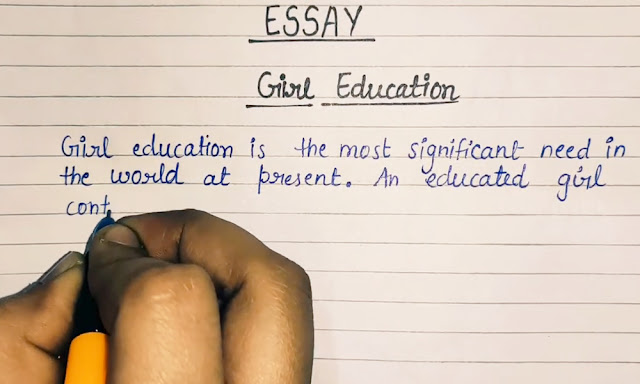 ESSAY
Girl Education
Girl education is the most significant need in
the world at present. An educated girl
cont